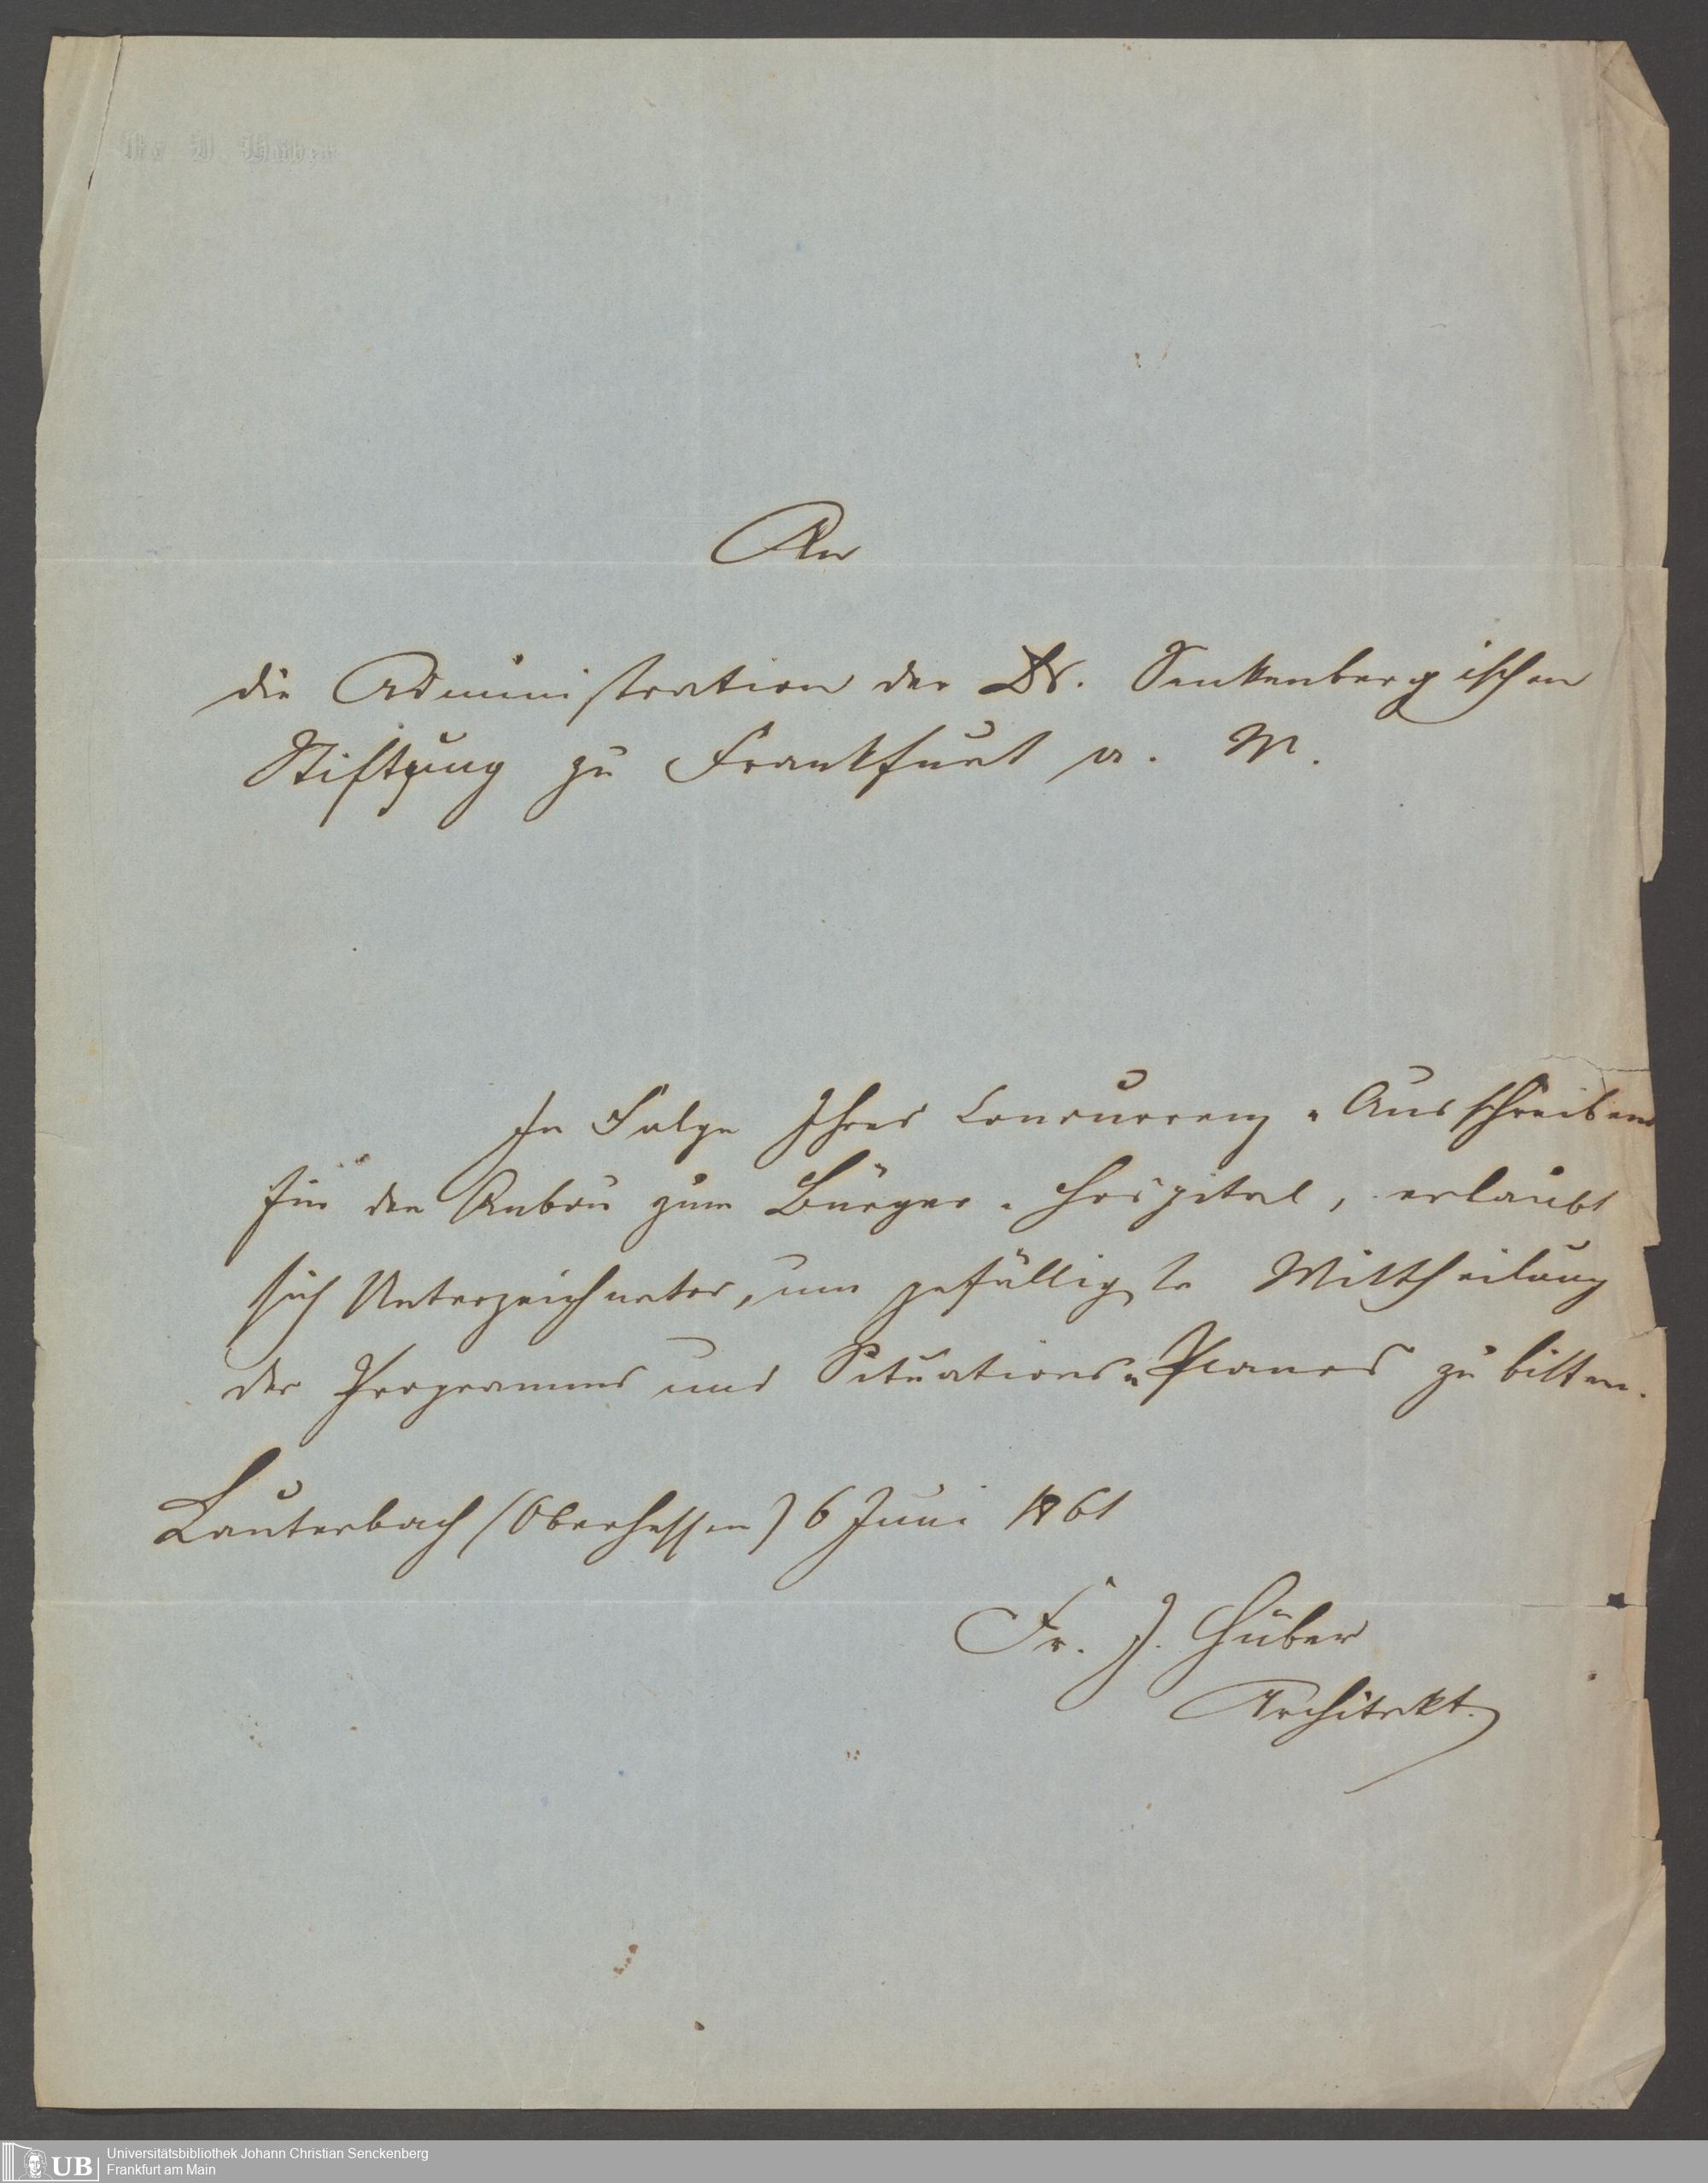 An
die Administration der Dr. Senkenbergischen
Stiftung zu Frankfurt a. M.
In Folge Ihres Concurrenz-Ausschreibens
für den Anbau zum Bürger-Hospital, erlaubt
sich Unterzeichneter, um gefälligste Mittheilung
des Programms und Situations-Planes zu bitten.
Lauterbach (Oberhessen) 6 Juni 1861
Fr. J. Huber
Architekt.
UB
Universitätsbibliothek Johann Christian Senckenberg
Frankfurt am Main